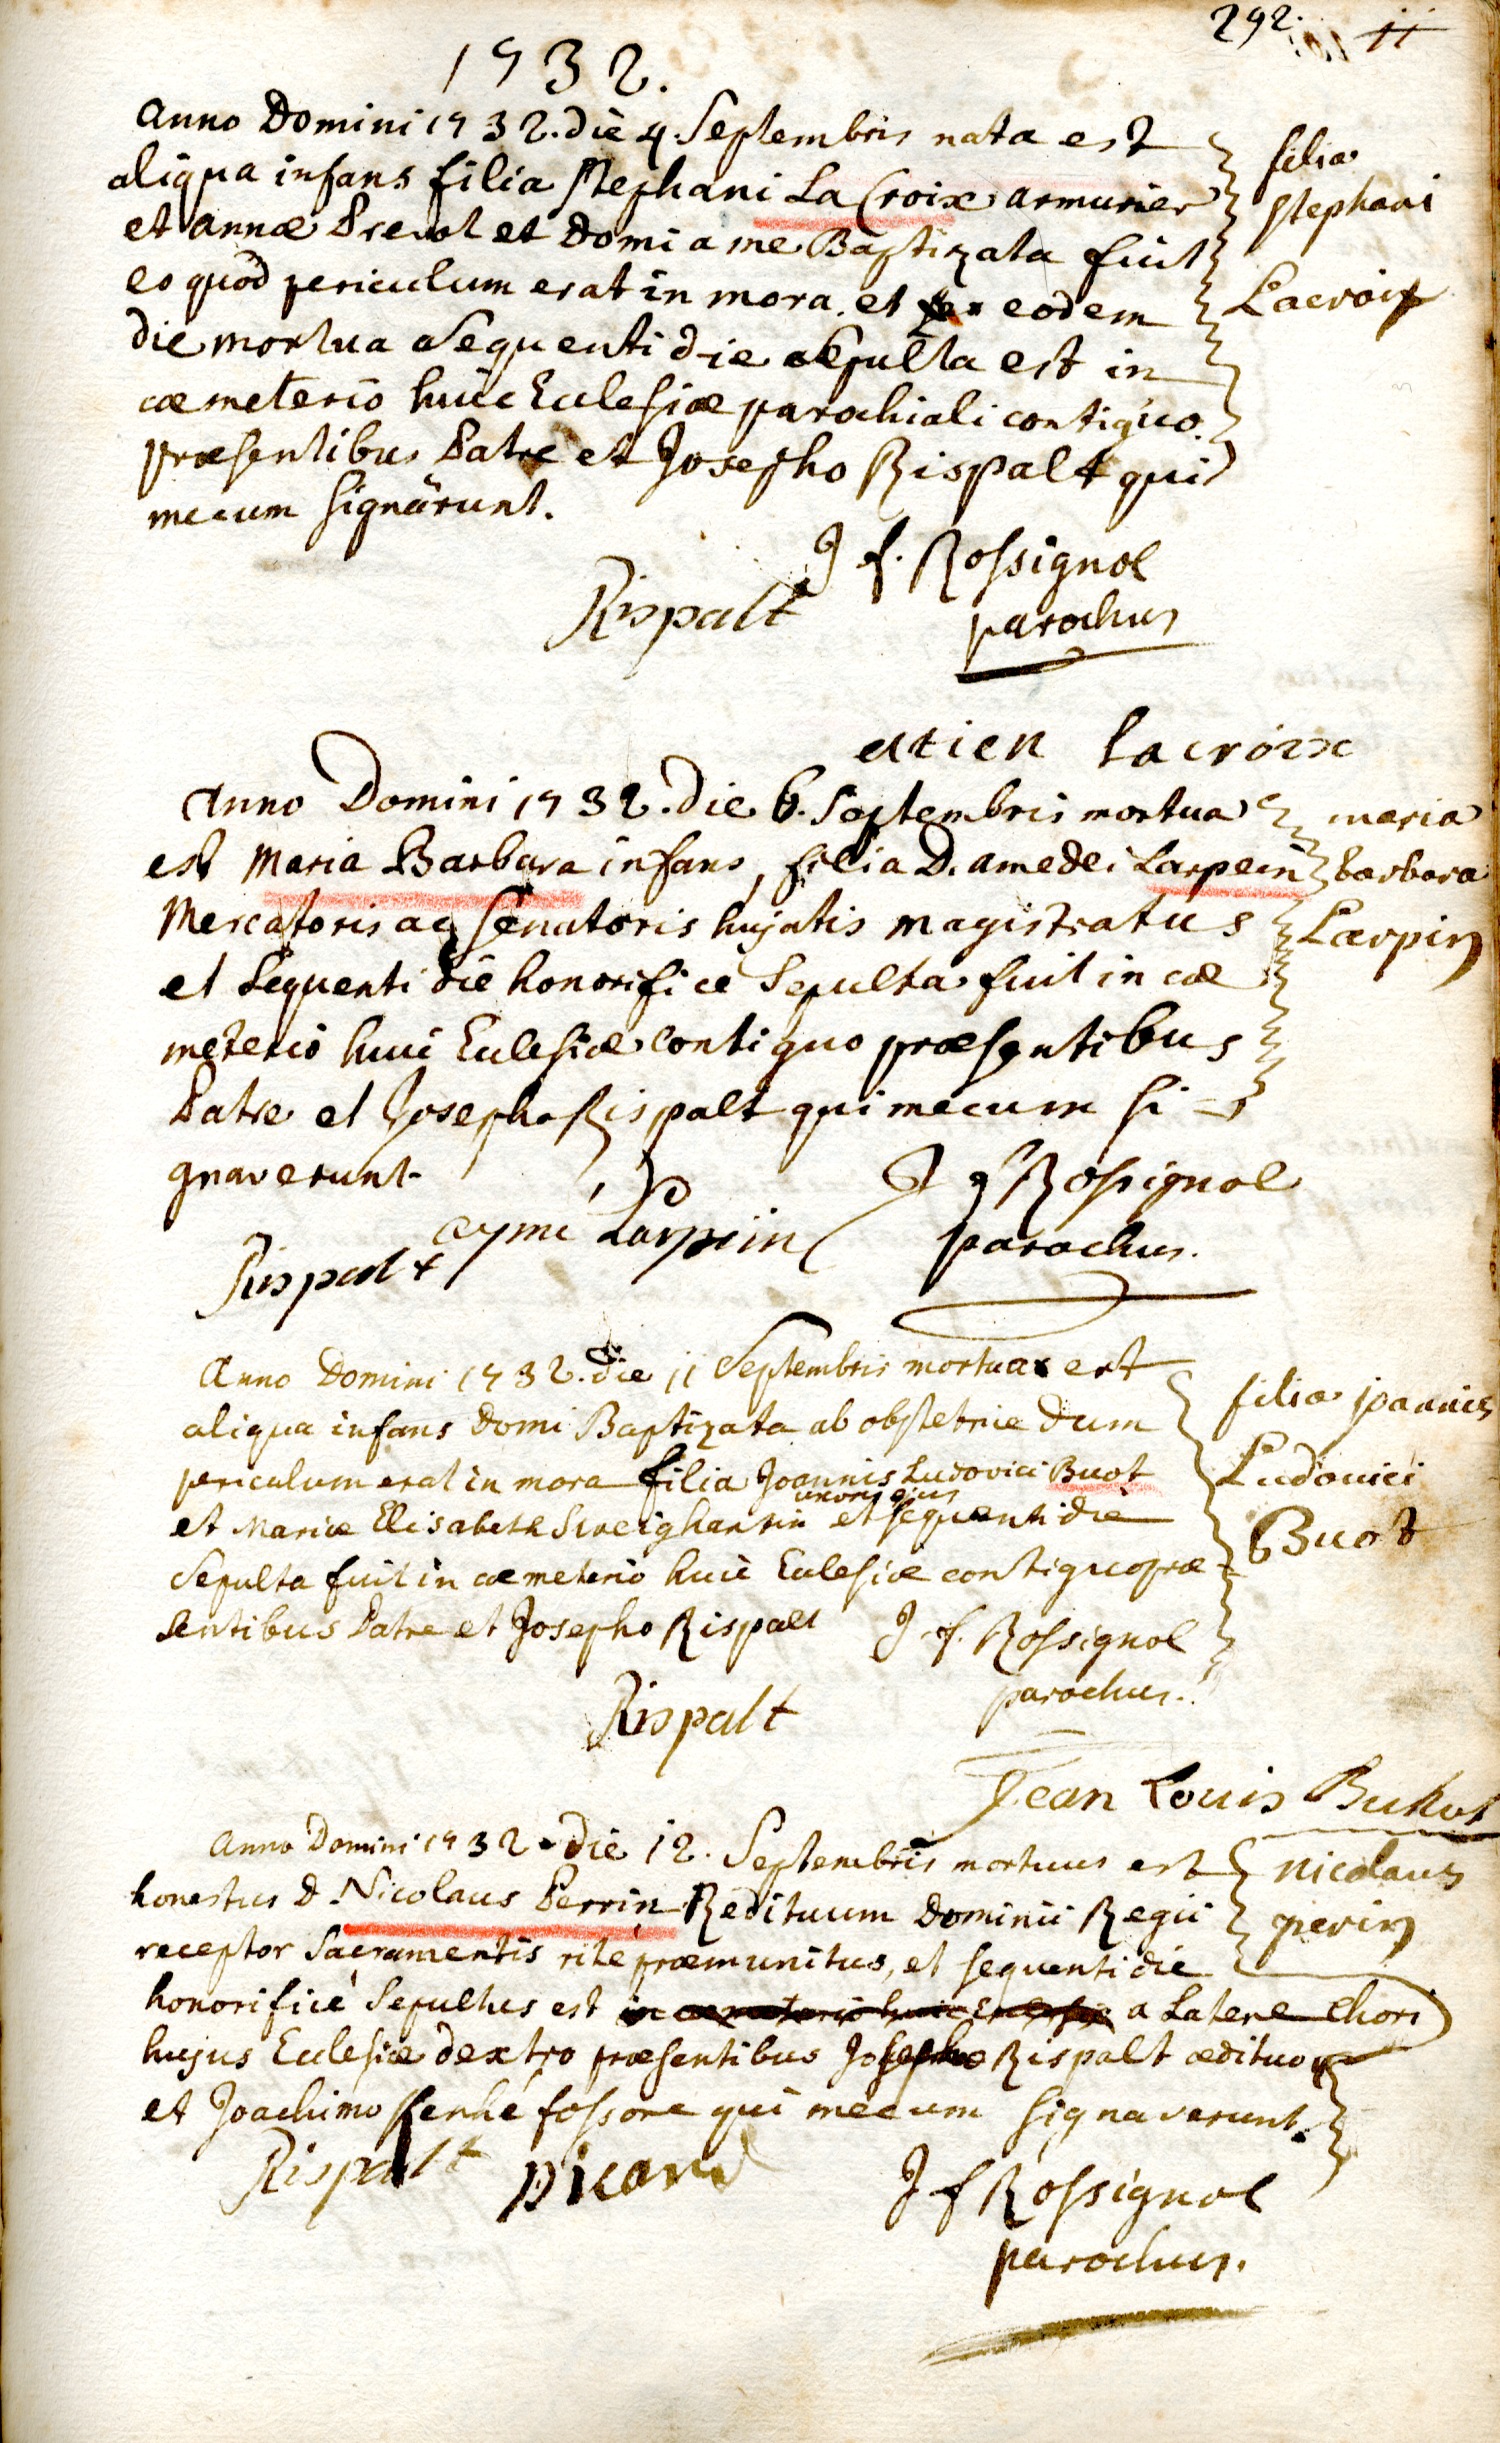 292. 11
1732.
Anno Domini 1732. die 4. Septembris nata est
aliqua infans filia Stephani La Croix armurier
et annæ Prevot et Domi a me Baptizata fuit
eo quod periculum erat in mora. et eodem
die mortua sequenti die sepulta est in
cæmeterio huic Eclesiæ parochiali contiguo.
præsentibus Patre et Josepho Rispalt qui
mecum signârunt.
filia
stephani
Lacroix
J f. Rossignol
Rispalt
parochus
etien lacroix
Anno Domini 1732. Die 6. Septembris mortua
est Maria Barbara infans, filia D. amedei Larpein
Mercatoris ac Senatoris hujatis magistratus
et sequenti die honorifice Sepulta fuit in cæ
meterio huic Eclesiæ contiguo præsentibus
Patre et Josepho Rispalt qui mecum si-
gnaverunt.
maria
barbara
Larpin
J f Rossignol
parochus.
aymé Larpein
Rispalt
Anno Domini 1732. Die 11 Septembris mortua est
aliqua infans Domi Baptizata ab obstetrice dum
periculum erat in mora filia Joannis Ludovici Buot
et Mariæ Elisabeth uxoris ejus et sequenti die
Sepulta fuit in cæmeterio huic Eclesiæ contiguo præ-
sentibus Patre et Josepho Rispalt
filia joannis
Ludovici
Buot
J. f. Rossignol
parochus.
Rispalt
Jean Louis Buhot
Anno Domini 1732. Die 12. Septembris mortuus est
honestus D. Nicolaus Perrin Redituum Dominii Regii
receptor Sacramentis rite præmunitus, et sequenti die
honorificè Sepultus est in cæmeterio huic Eclesiæ a Latere Chori
hujus Eclesiæ dextro præsentibus Josepho Rispalt ædituo
et Joachimo fossore qui mecum signaverunt.
nicolaus
perin
Rispalt picard
J f Rossignol
parochus.